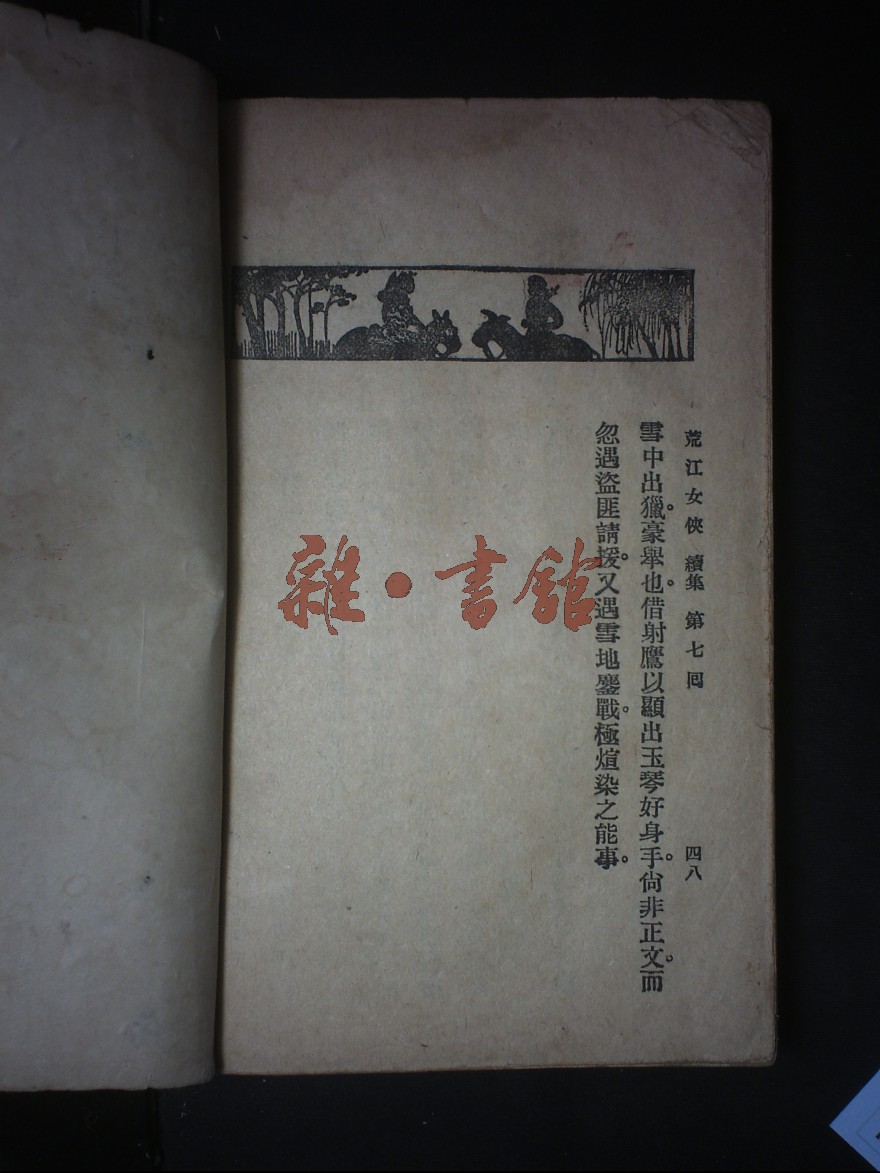 荒江女俠 續集 第七囘 四八
雪中出獵。豪舉也。借射鷹以顯出玉琴好身手。尙非正文。而
忽遇盜匪請援。又遇雪地鏖戰。極煊染之能事。
雜·書館